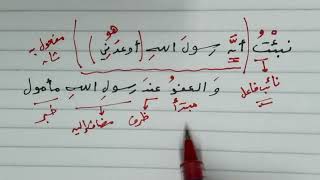 هو مفعول به
نبئْتُ (أنَّ رسولَ اللهِ (أوعدَني)) ثان
نائب فاعل
وَالعفوُ عندَ رسولِ اللهِ مأمول
مبتدأ ظرف مضاف إليه خبر